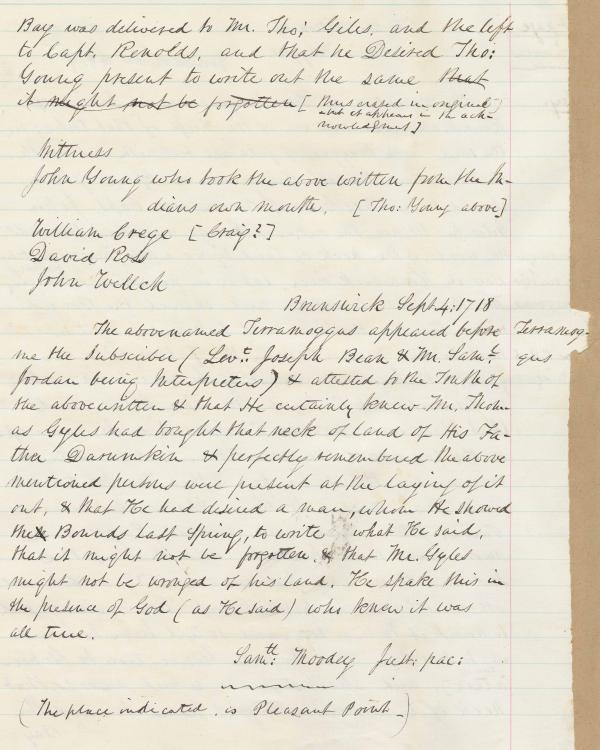 Bay was delivered to Mr. Tho; Giles, and the left
to Capt. Renolds, and that he Desired Tho:
Young present to write out the same that
it might not be forgotten [ Thus erased in original
but it appears in the ack-
nowledgmet ]
Wittness
John Young who took the above written from the In-
dians own mouth. [ Tho: Young above ]
William Crege [ Craig? ]
David Ross
John Wellch
Brunswick Sept. 4: 1718
The abovenamed Terramoggus appeared before
Terramog-
gus
me the Subscriber ( Levt: Joseph Bean & Mr. Saml.
Jordan being Interpreters ) & attested to the Truth of
the abovewritten & that He certainly knew Mr. Thom-
as Gyles had bought that neck of land of His Fa-
ther Darumkin & perfectly remembered the above
mentioned persons were present at the laying of it
out, & that He had desired a man, whom He showed
the Bounds last Spring, to write what He said,
that it might not be forgotten & that Mr. Gyles
might not be wronged of his land. He spake this in
the presence of God ( as He said ) who knew it was
all true.
Samth: Moodey Just: pac:
( The place indicated is Pleasant Point - )